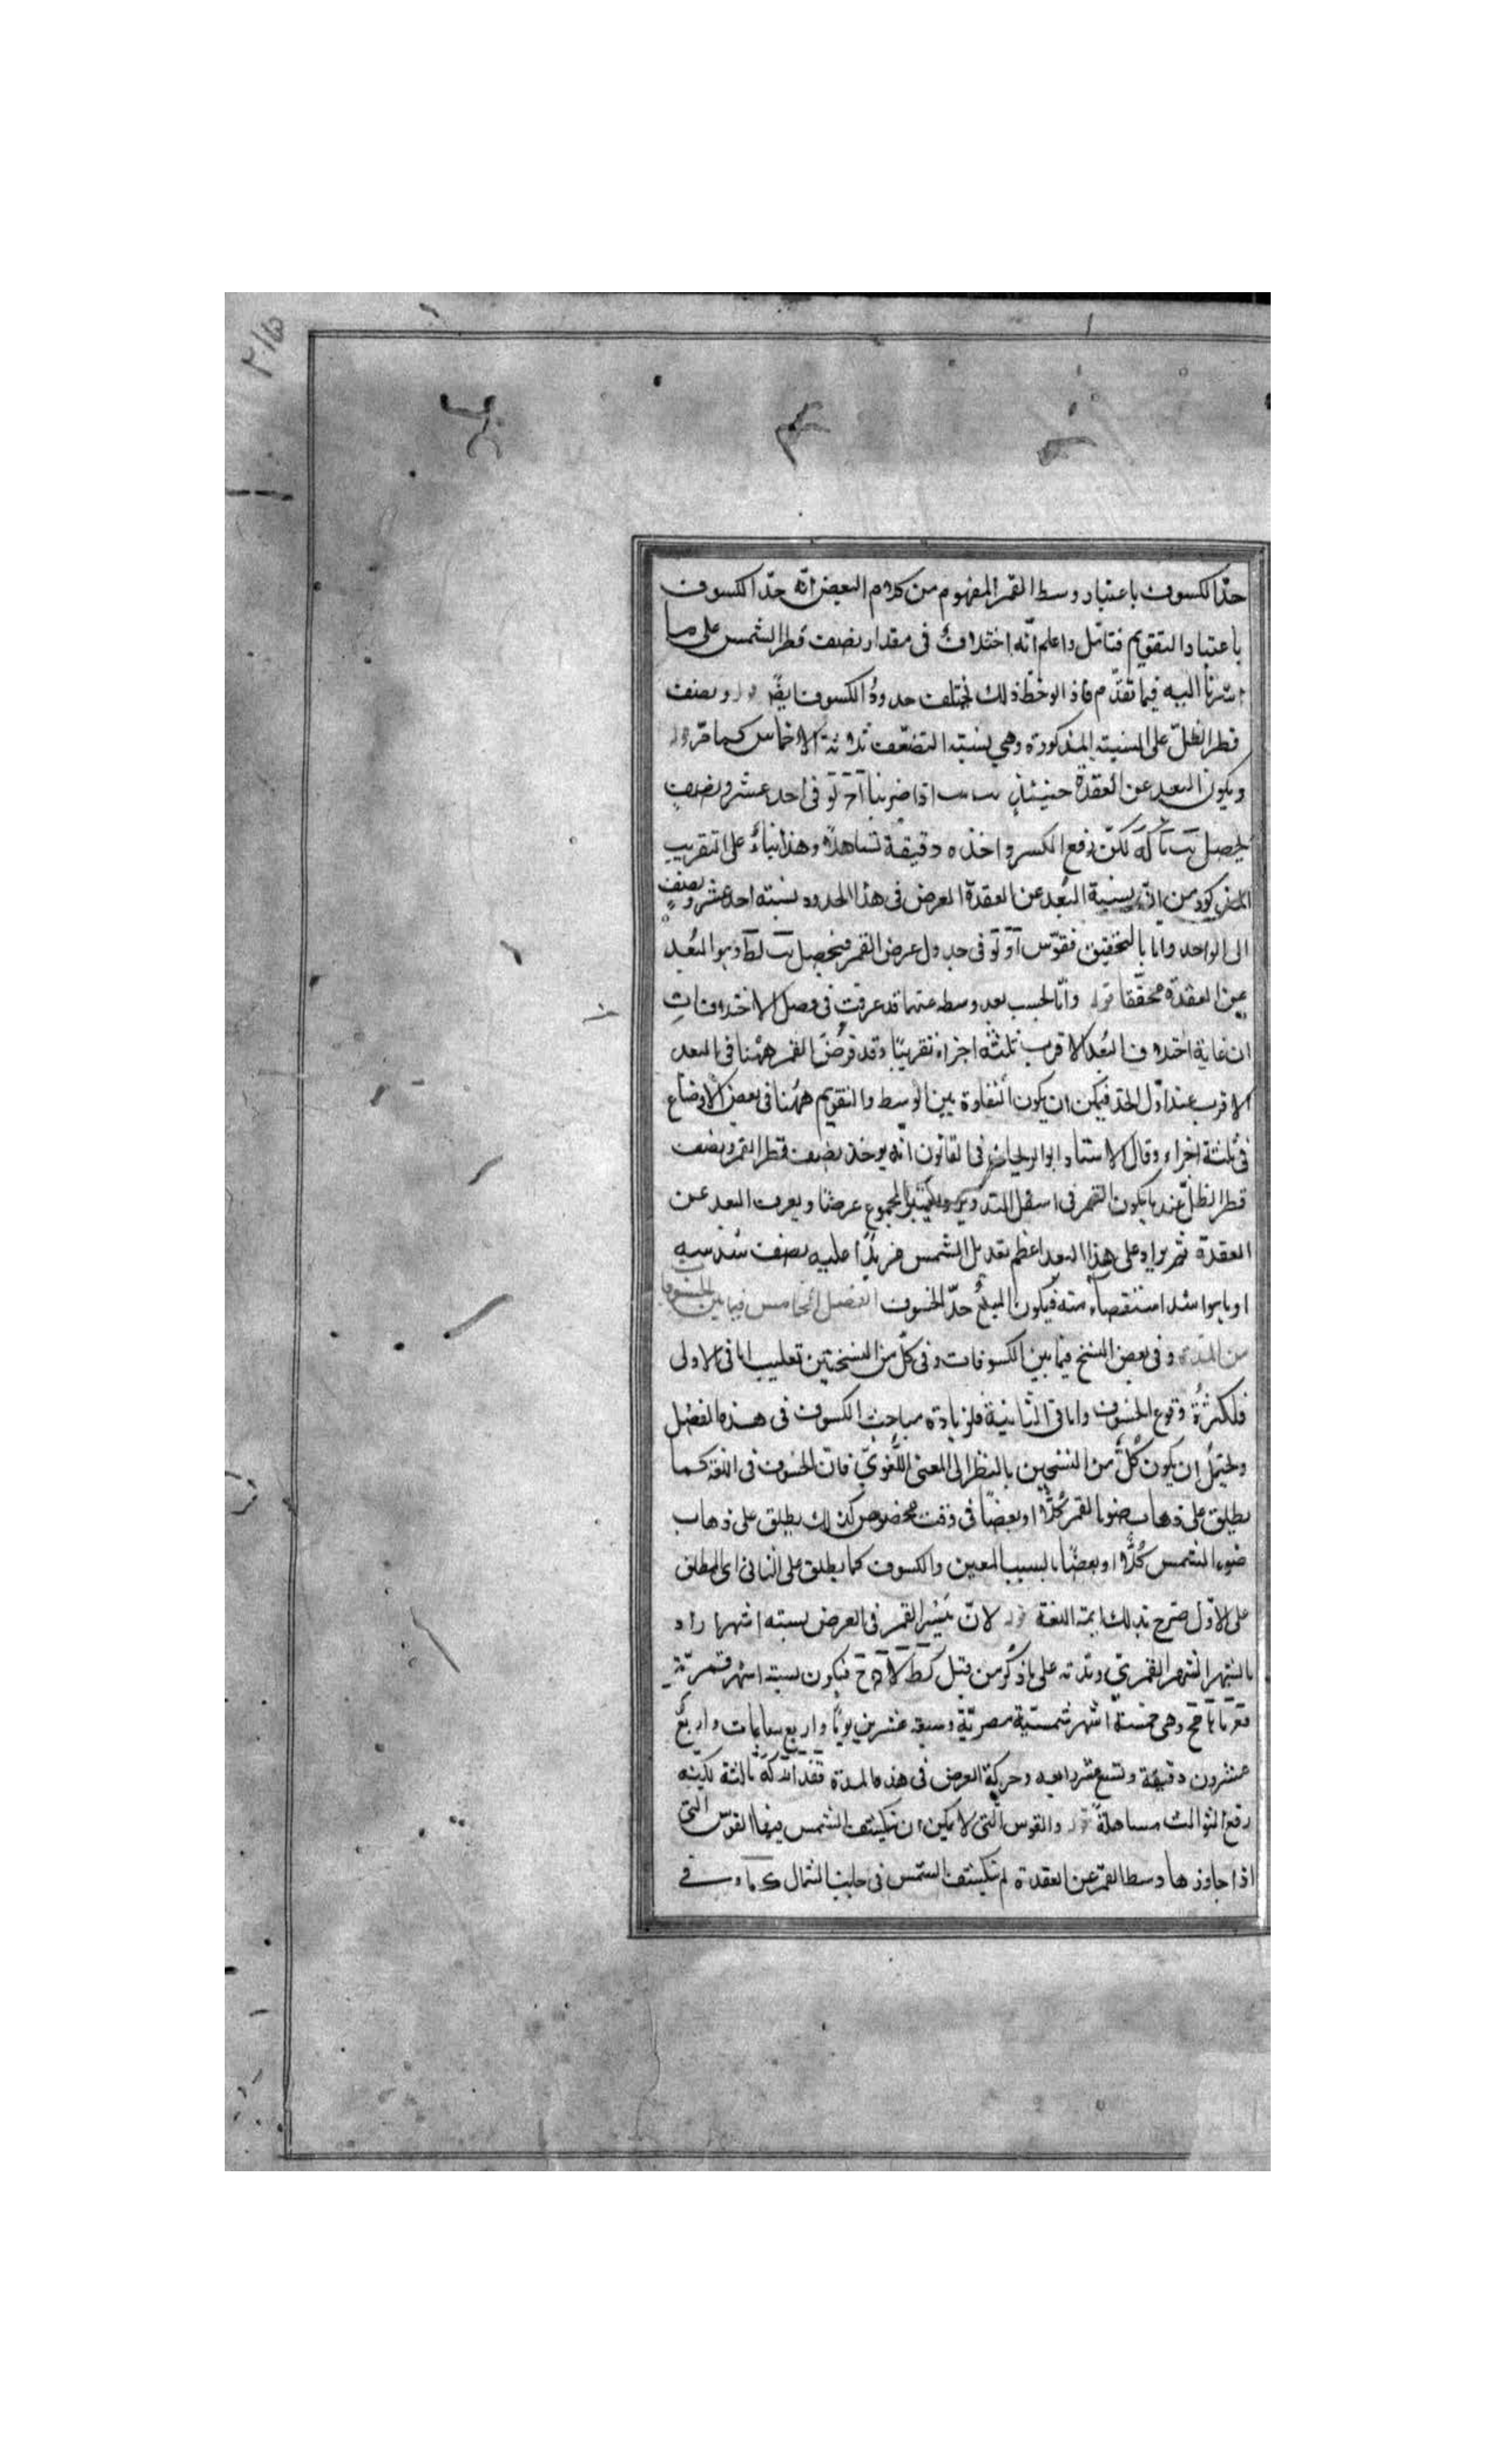 حدّ الكسوف باعتبار وسط القمر المفهوم من كلام البعض انّه حدّ الكسوف
باعتبار التقويم فتامّل واعلم انّه اختلاف فى مقدار نصف قطر الشمس على ما
اشرنا اليه فيما تقدّم فاذا لوحظ ذلك يختلف حدودُ الكسوف ايضًا قوله ونصف
قطر الظلّ على النسبة المذكورة وهى نسبته الضعف ثلاثة الاخماس كما مرّ قوله
ويكون البعد عن العقدة حينئذٍ اذا ضربنا فى احد عشر ونصفٍ
يحصل لكنّ رفع الكسر واخذه دقيقة تساهلاً وهذا بناءً على التقريب
المذكور من انّ نسبة البُعد عن العقدة العرض فى هذا الحدود نسبته احد عشر ونصفٍ
الى الواحد وامّا بالتحقيق فقوّس فى جدول عرض القمر فيحصل وهو البُعد
عن العقدة محقّقا قوله وامّا بحسب بعد وسطه عنها قد عرفت فى فصل الاختلافات
ان غاية اختلاف البُعد الاقرب ثلثة اجزاء تقريبًا وقد فرض القمر ههنا فى البعد
الاقرب عند اوّل الحدّ فيمكن ان يكون التفاوة بين الوسط والتقويم ههنا فى بعض الاوضاع
فى ثلثة اجزاء وقال الاستاد ابو الريحان فى القانون انّه يوخذ نصف قطر القمر ونصف
قطر الظلّ عند ما يكون القمر فى اسفل التدوير المجموع عرضًا ويعرف البعد عن
العقدة ثمّ يزاد على هذا البعد اعظم تعديل الشمس مزيدًا عليه نصف سُدسه
او ما هو اشد استقصاء منه فيكون المبلغ حدّ الخسوف الفصل الخامس فيما بين الخسوفات
من المدّة وفى بعض النسخ فيما بين الكسوفات وفى كلّ من النسختين تغليب امّا فى الاولى
فلكثرةُ وقوع الخسوف وامّا فى الثانية فلزيادة مباحث الكسوف فى هذه الفصل
ويحتمل ان يكون كلٌّ من النسختين بالنظر الى المعنى اللّغوىّ فانّ الخسوف فى اللغة كما
يطلق على ذهاب ضوء القمر كُلًّا او بعضًا فى وقت مخصوص كذلك يطلق على ذهاب
ضوء الشمس كُلًّا او بعضًا بالسبب المعين والكسوف كما يطلق على الثانى اى المطلق
على الاوّل صرّح بذلك ايمة اللغة قوله لانّ مَسيرَ القمر فى العرض بستة اشهر اراد
بالشهر الشهر القمرىّ ومدّته على ما ذكر من قبل كط لا فيكون بستة اشهر قمريّة
وهى خمسة اشهر شمسية مصريّة وسبعة عشرين يومًا واربع ساعات واربع
عشرون دقيقة وتسع عشر رابعه وحركة العرض فى هذه المدة ثالثة لكنه
رفع الثوالث مساهلةً قوله والقوس التى لا يمكن ان تنكسف الشمس فيها القوس التى
اذا جاوزها وسط القمر عن العقدة لم تنكسف الشمس فى جانب الشمال فى